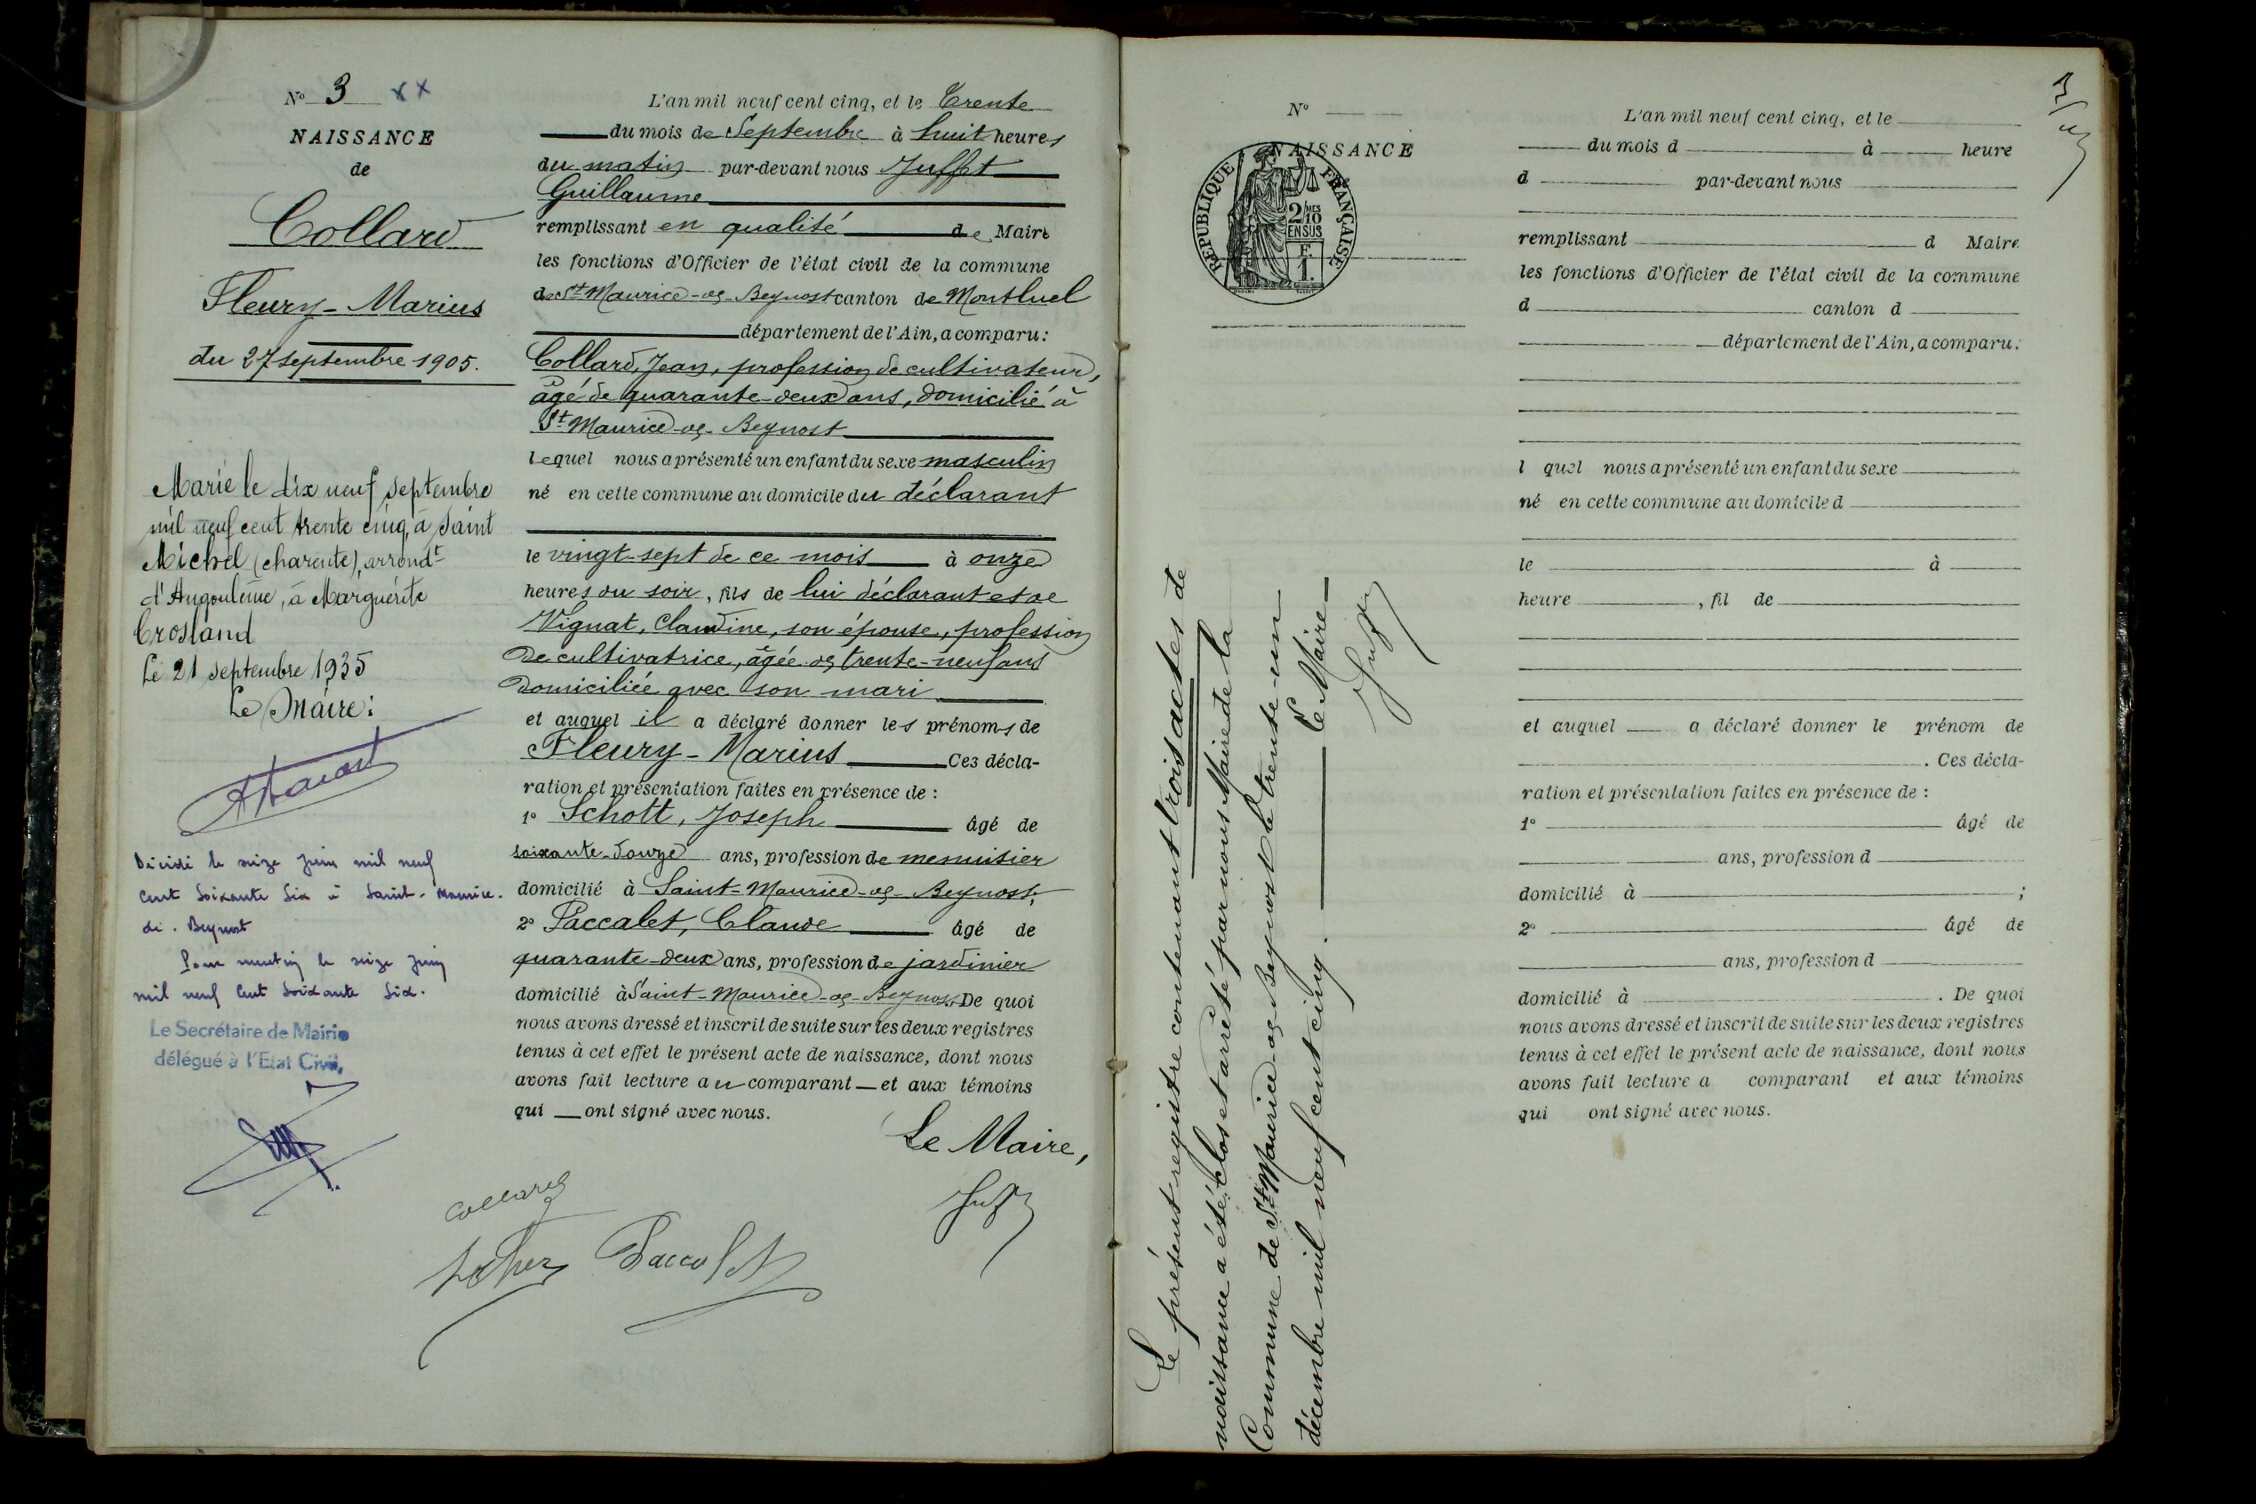 N° 3 xx
NAISSANCE
de
Collard
Fleury-Marius
du 27 septembre 1905.
Marié le dix neuf septembre
mil neuf cent trente cinq, à Saint
Michel (charente), arrondt
d'Angoulême, à Marguérite
Crosland
Le 21 septembre 1935
Le Maire:
Décédé le seize juin mil neuf
Cent Soixante Six à Saint-Maurice-
de-Beynost
Pour mention le seize juin
mil neuf Cent Soixante Six.
Le Secrétaire de Mairie
délégué à l'Etat Civil,
L'an mil neuf cent cinq, et le Trente
du mois de Septembre à huit heures
du matin par-devant nous Juffet
Guillaume
remplissant en qualité de Maire
les fonctions d'Officier de l'état civil de la commune
de St Maurice-de-Beynost canton de Montluel
département de l'Ain, a comparu:
Collard, Jean, profession de cultivateur,
âgé de quarante-deux ans, domicilié à
St Maurice-de-Beynost
lequel nous a présenté un enfant du sexe masculin
né en cette commune au domicile du déclarant
le vingt-sept de ce mois à onze
heures du soir, fils de lui déclarant et de
Vignat, Claudine, son épouse, profession
de cultivatrice, âgée de trente-neuf ans
domiciliée avec son mari
et auquel il a déclaré donner les prénoms de
Fleury-Marius Ces décla-
ration et présentation faites en présence de :
1° Schott, Joseph âgé de
soixante-douze ans, profession de menuisier
domicilié à Saint-Maurice-de-Beynost;
2° Paccalet, Claude âgé de
quarante-deux ans, profession de jardinier
domicilié à Saint-Maurice-de-Beynost. De quoi
nous avons dressé et inscrit de suite sur les deux registres
tenus à cet effet le présent acte de naissance, dont nous
avons fait lecture au comparant et aux témoins
qui ont signé avec nous.
Le Maire,
Collard
Paccalet
Le présent registre contenant trois actes de
naissance a été clos et arrêté par nous Maire de la
Commune de St Maurice-de-Beynost le trente-un
décembre mil neuf cent cinq. Le Maire
N°
NAISSANCE
REPUBLIQUE FRANÇAISE
2/MES 10
EN SUS
F.
1.
L'an mil neuf cent cinq, et le
du mois d à heure
d par-devant nous
remplissant d Maire
les fonctions d'Officier de l'état civil de la commune
d canton d
département de l'Ain, a comparu:
l quel nous a présenté un enfant du sexe
né en cette commune au domicile d
le à
heure , fil de
et auquel a déclaré donner le prénom de
. Ces décla-
ration et présentation faites en présence de :
1° âgé de
ans, profession d
domicilié à ;
2° âgé de
ans, profession d
domicilié à . De quoi
nous avons dressé et inscrit de suite sur les deux registres
tenus à cet effet le présent acte de naissance, dont nous
avons fait lecture a comparant et aux témoins
qui ont signé avec nous.